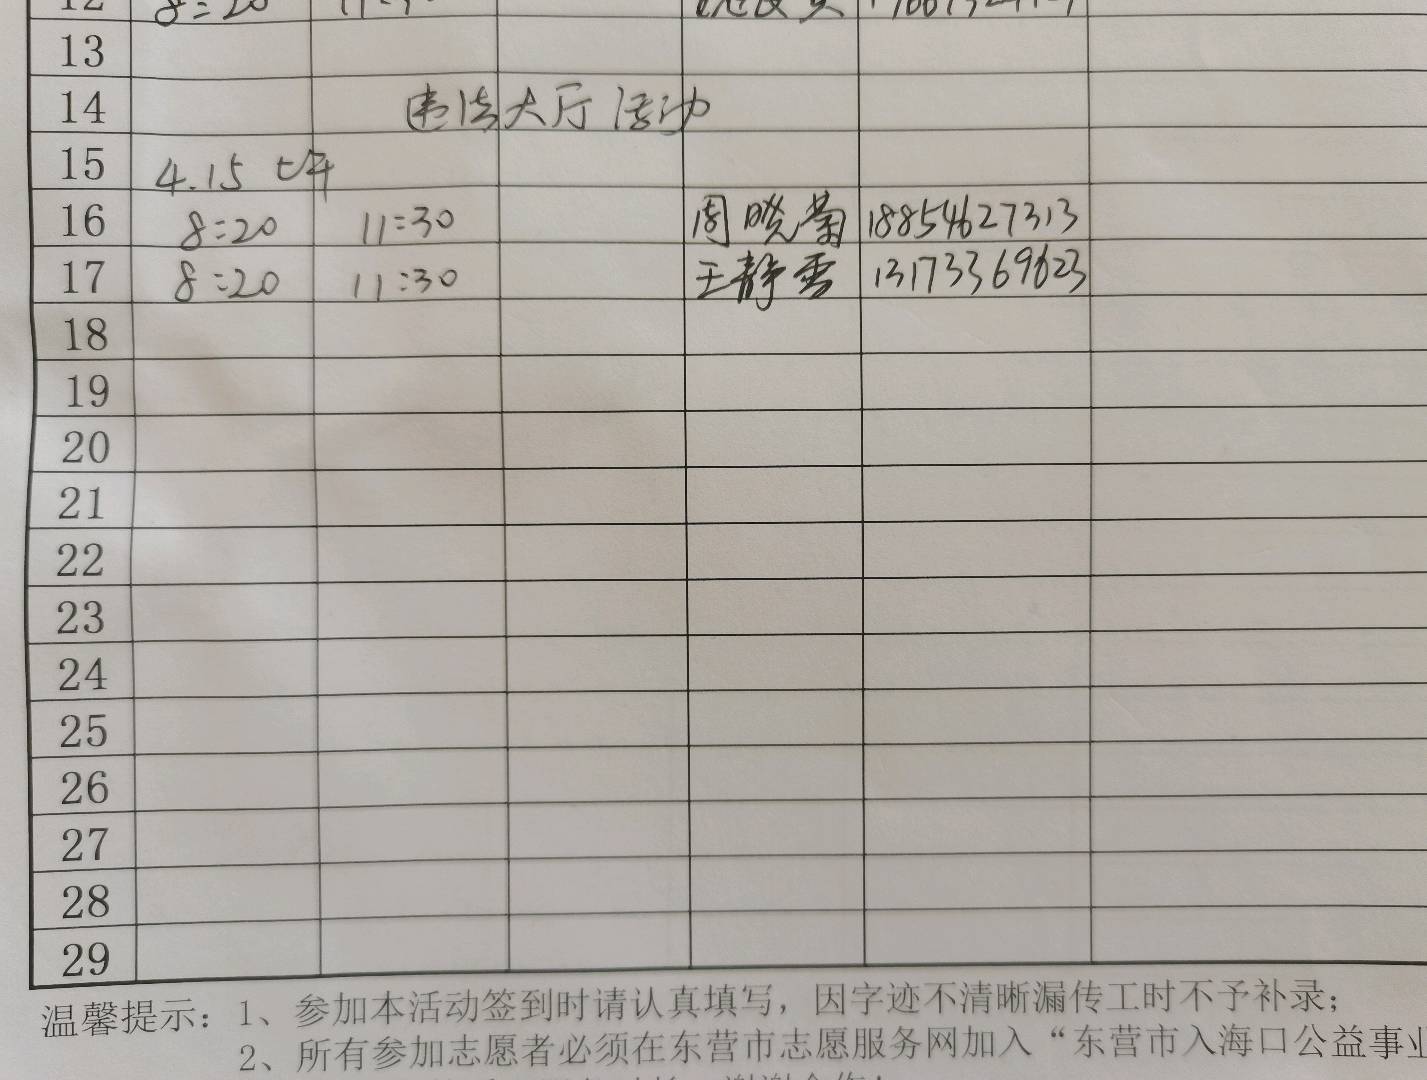 12 8:20
13
14 违法大厅活动
15 4.15 上午
16 8:20 11:30 周晓菊 18854627313
17 8:20 11:30 王静雪 13173369623
18
19
20
21
22
23
24
25
26
27
28
29
温馨提示：1、参加本活动签到时请认真填写，因字迹不清晰漏传工时不予补录；
2、所有参加志愿者必须在东营市志愿服务网加入“东营市入海口公益事业